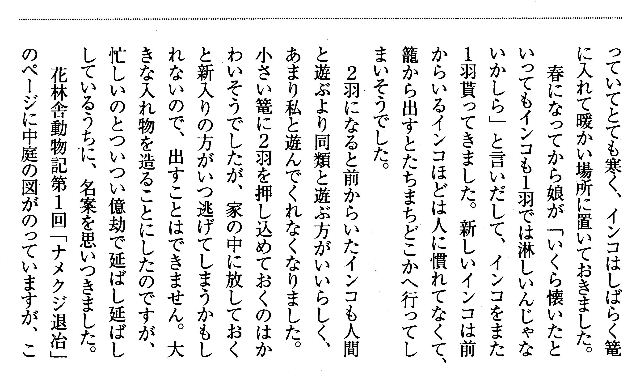 っていてとても寒く、インコはしばらく篭
に入れて暖かい場所に置いておきました。
春になってから娘が「いくら懐いたと
いってもインコも1羽では淋しいんじゃな
いかしら」と言いだして、インコをまた
1羽貰ってきました。新しいインコは前
からいるインコほどは人に慣れてなくて、
籠から出すとたちまちどこかへ行ってし
まいそうでした。
2羽になると前からいたインコも人間
と遊ぶより同類と遊ぶ方がいいらしく、
あまり私と遊んでくれなくなりました。
小さい篭に2羽を押し込めておくのはか
わいそうでしたが、家の中に放しておく
と新入りの方がいつ逃げてしまうかもし
れないので、出すことはできません。大
きな入れ物を造ることにしたのですが、
忙しいのとついつい億劫で延ばし延ばし
しているうちに、名案を思いつきました。
花林舎動物記第1回「ナメクジ退治」
のページに中庭の図がのっていますが、こ